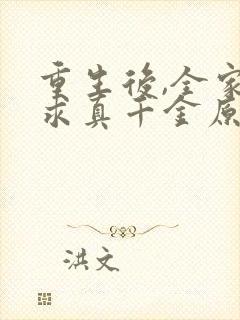 重生後,全家
求真千金原
洪文